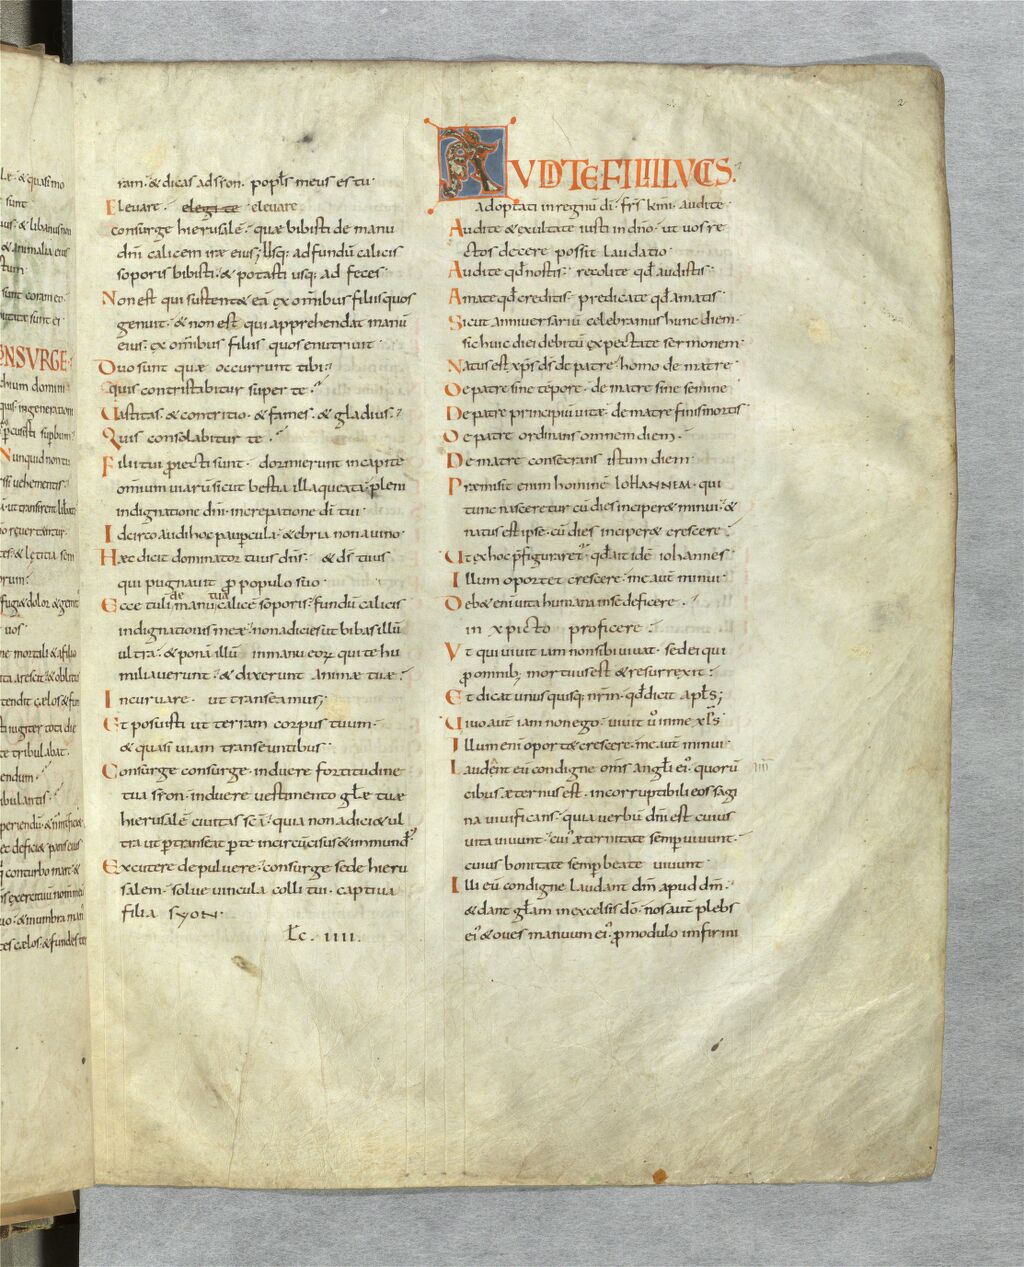 2
Lę. & quasi mo
sunt
& animalia eius
sunt coram eo
CONSURGE
in generation
Nunquid non tu
vehementis
& lętitia sem
fugi& dolor & gemi
vos
tendit cęlos & fun
iugiter tota die
tribulabat
cęlos & fundes ter
ram. & dicas ad syon. popl̄s meus es tu
Elevare. elegi te elevare
consurge hierusalē. quæ bibisti de manu
dn̄i calicem iræ eius; Usq; ad fundū calicis
soporis bibisti. & potasti usq; ad feces
Non est qui sustent& eā ex om̄ibus filiis quos
genuit. & non est qui apprehendat manū
eius. ex om̄ibus filiis quos enutrivit
Duo sunt quæ occurrunt tibi
quis contristabitur super te
Uastitas & contritio. & fames. & gladius
Quis consolabitur te
Filii tui ꝓiecti sunt. dormierunt in capite
omnium uiarū sicut bestia illaqueata. pleni
indignatione dn̄i. increpatione dī tui
Idcirco audi hoc paupcula. & ebria non a vino
Hæc dicit dominator tuus dn̄s. & ds̄ tuus
qui pugnavit ꝓ populo suo
de tua
Ecce tuli manu calicē soporis. fundū calicis
indignationis meæ. non adicies ut bibas illū
ultra. & ponā illū in manu eoꝝ qui te hu
miliaverunt. & dixerunt animæ tuæ
Incurvare. ut transeamus;
Et posuisti ut terram corpus tuum.
& quasi viam transeuntibus
Consurge consurge. induere fortitudine
tua syon. induere vestimento gl̄æ tuæ
hierusalē civitas sc̄i. quia non adici& ul
tra ut ptranseat p te incircūcisus & inmund
Excutere de pulvere. consurge sede hieru
salem. solve vincula colli tui. captiva
filia syon.
Lc. IIII.
AUDITE FILII LUCIS.
Adoptati in regnū dī. frs̄ kmi. audite
Audite & exultate iusti in dn̄o. ut vos re
ctos decere possit laudatio
Audite qd̄ nostis. recolite qd̄ audistis
Amate qd̄ creditis. predicate qd̄ amatis
Sicut anniversariū celebramus hunc diem.
sic huic diei debitū expectate sermonem
Natus est xp̄s ds̄ de patre. homo de matre
De patre sine tēpore. de matre sine semine
De patre principiū vitæ. de matre finis mortis
De patre ordinans omnem diem.
De matre consecrans istum diem
Præmisit enim hominē IOHANNEM. qui
tunc nasceretur cū dies inciper& minui. &
natus est ipse. cū dies inciper& crescere
Ut ex hoc p̄figuraret. qd̄ ait idē iohannes
Illum oportet crescere. me aut̄ minui
Deb& eni vita humana in se deficere.
in xpicto proficere
Ut qui vivit iam non sibi vivat. sed ei qui
ꝓ omnib; mortuus est & resurrexit
Et dicat unus quisq; nrm̄. qd̄ dicit apl̄s;
Uivo aut̄ iam non ego. vivit v̄ in me xp̄s
Illum eni oport& crescere. me aut̄ minui
Laudent eū condigne om̄s angl̄i ei. quorū
cibus æternus est. incorruptibili eos sagi
na vivificans. quia verbū dn̄i est cuius
vita vivunt. cui æternitate semp vivunt.
cuius bonitate semp beate vivunt
Illi eū condigne laudant dm̄ apud dm̄.
& dant gl̄am in excelsis dō. nos aut̄ plebs
ei & oves manuum ei. ꝓ modulo infirmi